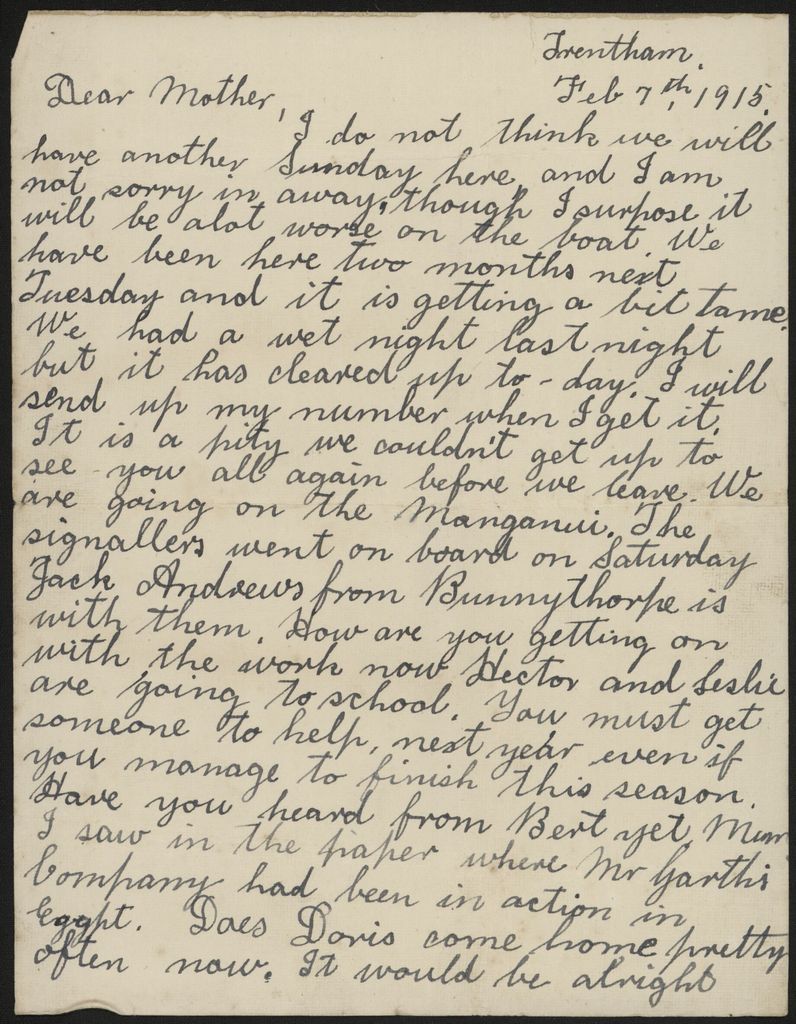 Trentham.
Feb 7th, 1915.
Dear Mother,
I do not think we will
have another Sunday here and I am
not sorry in away, though I surpose it
will be alot worse on the boat. We
have been here two months next
Tuesday and it is getting a bit tame.
We had a wet night last night
but it has cleared up to-day. I will
send up my number when I get it.
It is a pity we couldn't get up to
see you all again before we leave. We
are going on the Manganui. The
signallers went on board on Saturday
Jack Andrews from Bunnythorpe is
with them. How are you getting on
with the work now Hector and Leslie
are going to school. You must get
someone to help, next year even if
you manage to finish this season.
Have you heard from Bert yet Mum
I saw in the paper where Mr Garth's
Company had been in action in
Egypt. Does Doris come home pretty
often now. It would be alright